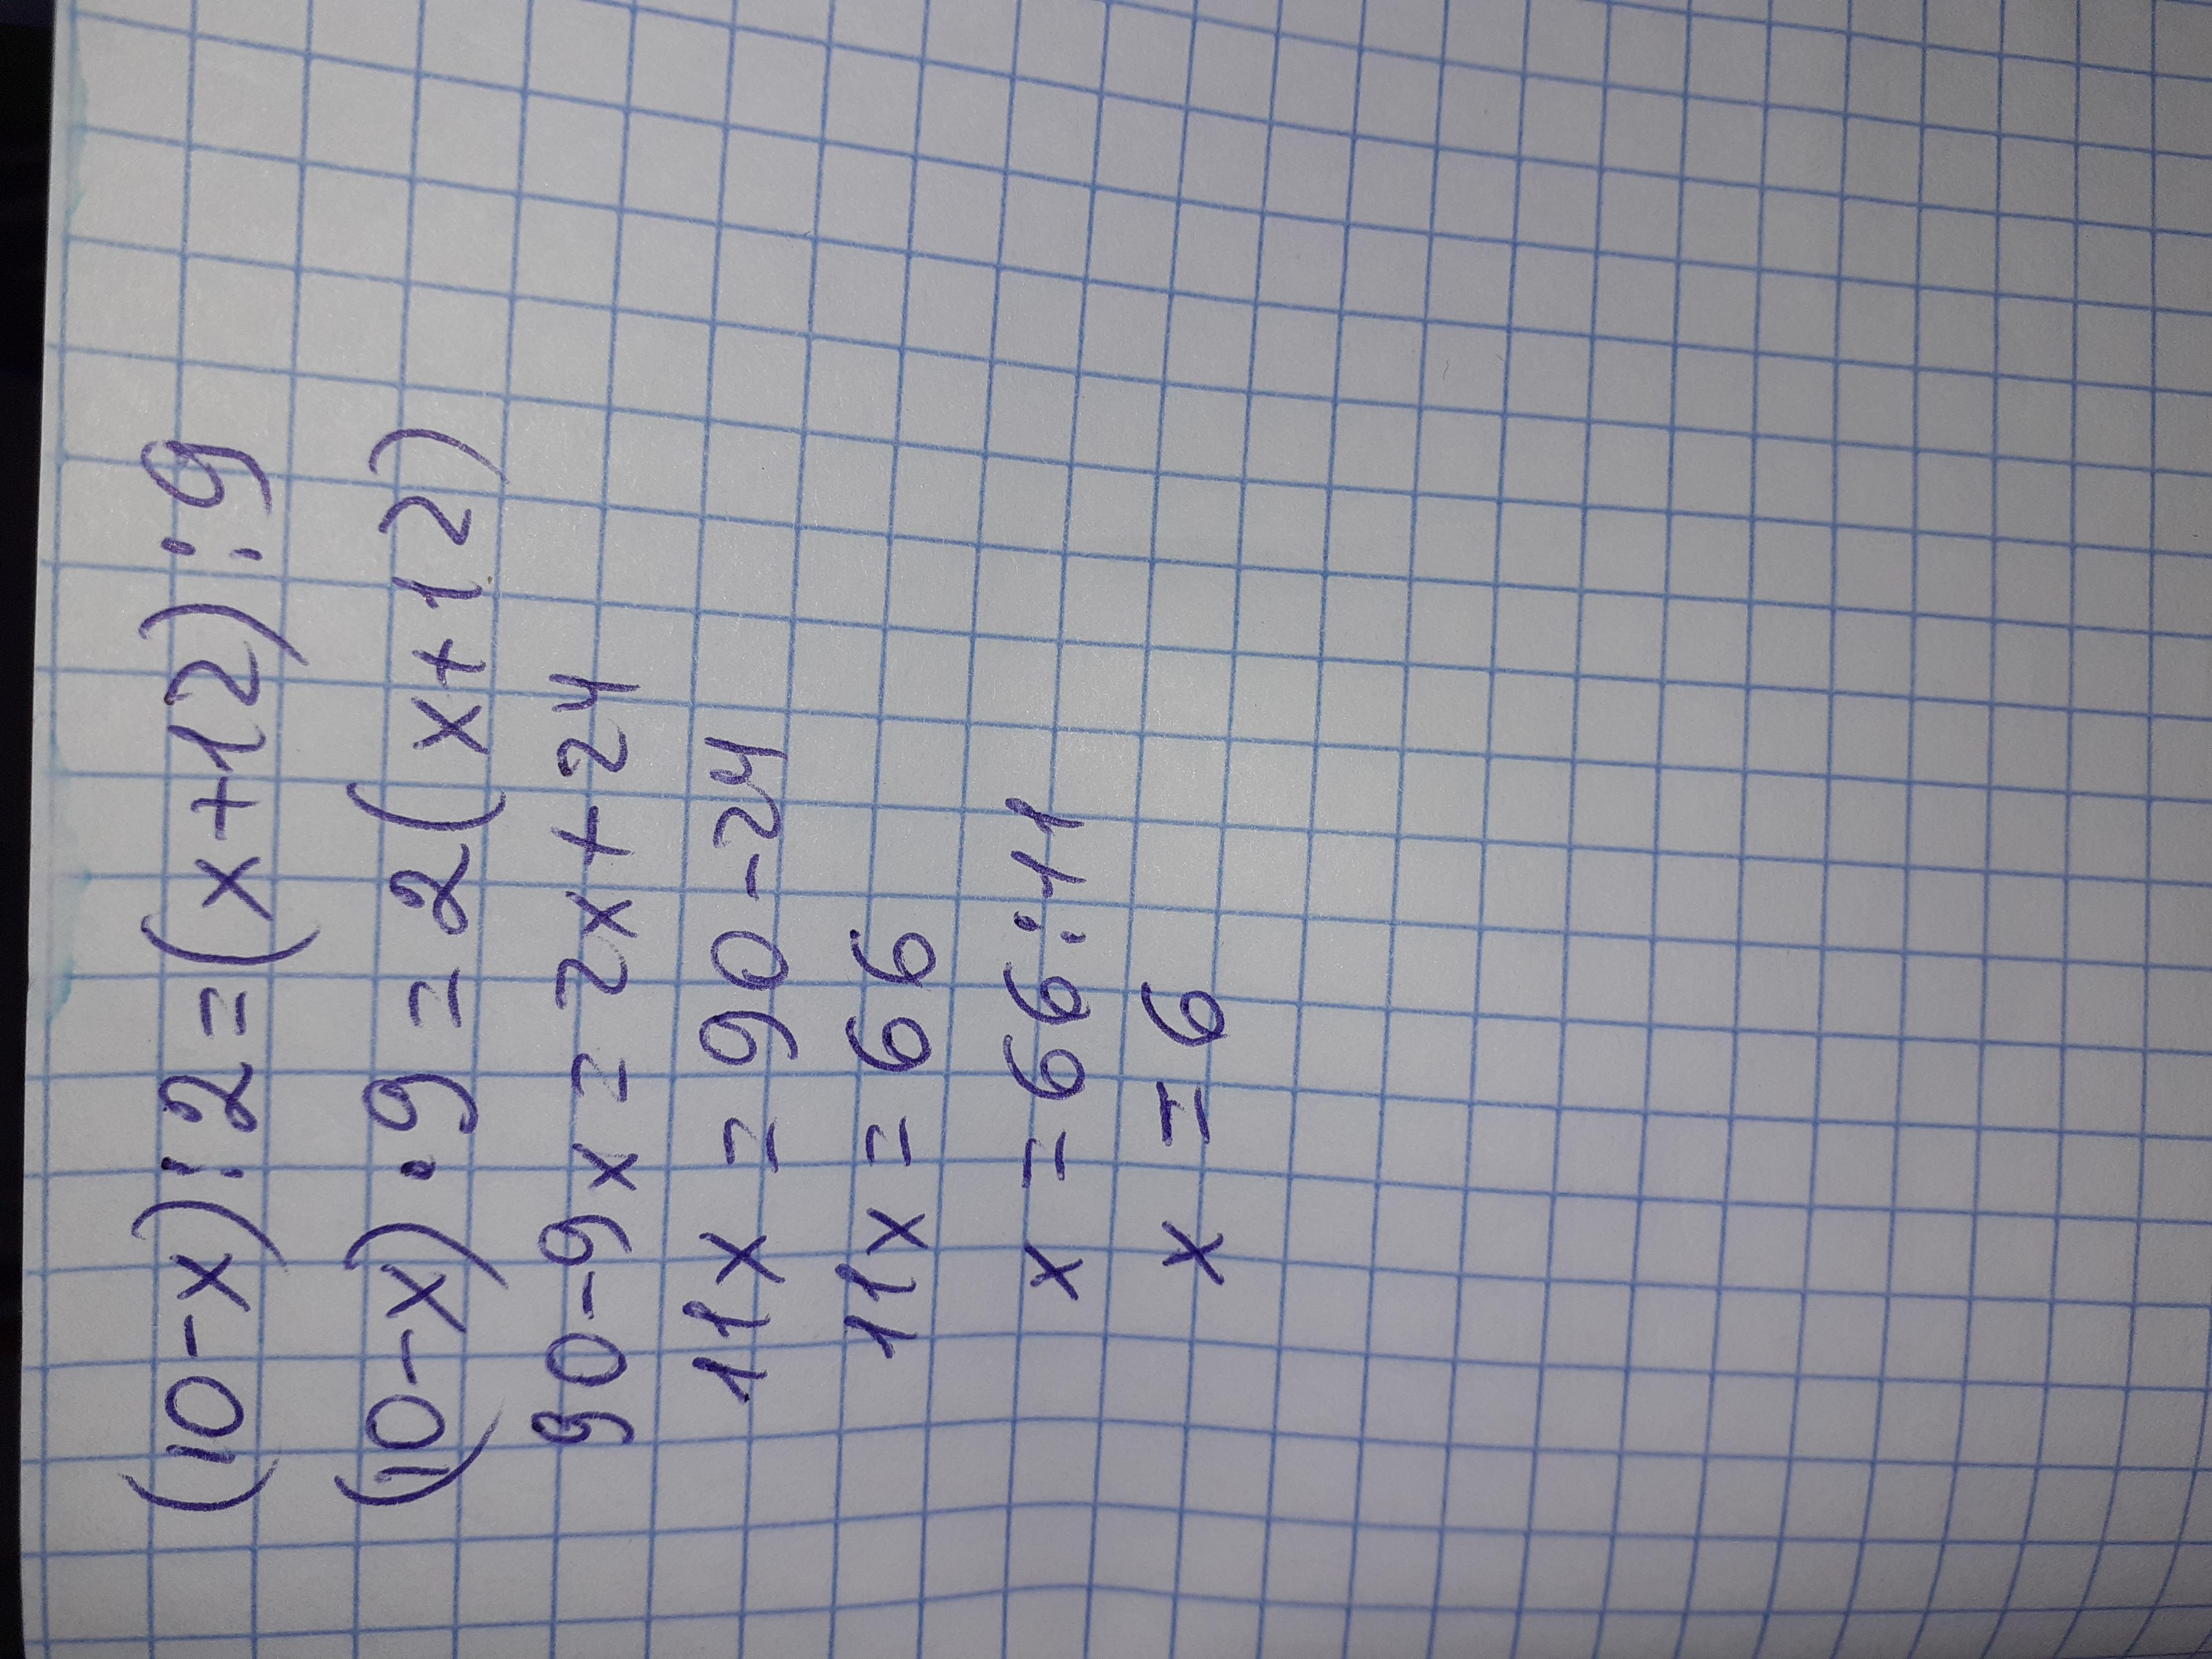 (10-x):2=(x+12):9
(10-x)·9=2(x+12)
90-9x=2x+24
11x=90-24
11x=66
x=66:11
x=6